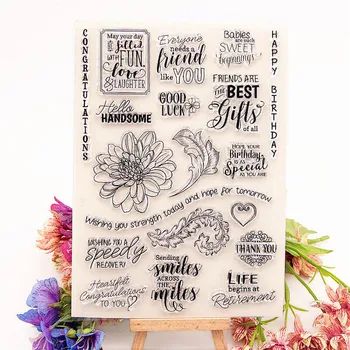 CONGRATULATIONS
May your day
be filled
with FUN,
love
& LAUGHTER
Everyone
needs a
friend
like YOU
Babies
are such
SWEET
beginnings
HAPPY BIRTHDAY
Hello
HANDSOME
GOOD
LUCK
FRIENDS ARE
THE BEST
Gifts
of all
HOPE YOUR
Birthday
IS AS
Special
AS YOU ARE
Wishing you strength today and hope for tomorrow
WISHING YOU A
speedy
RECOVERY
Sending
smiles
ACROSS
THE
miles
THANK YOU
Heartfelt
Congratulations
TO YOU
LIFE
begins at
Retirement